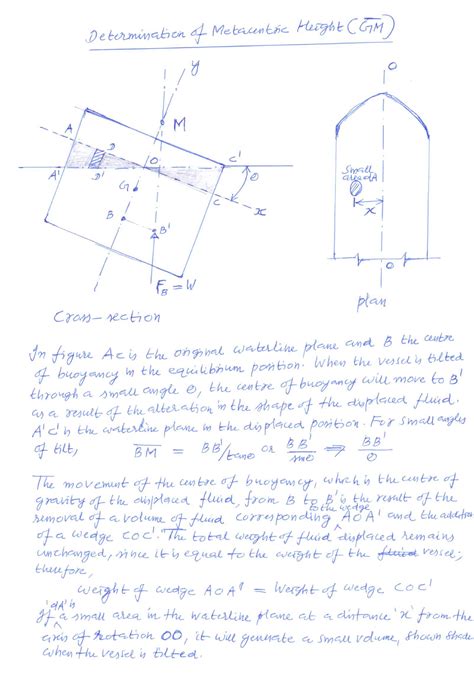 Determination of Metacentric Height (GM)
y
M
A
D
O
C'
A'
D'
θ
G
C
x
B
B'
F_B = W
Cross-section
O
small
area dA
x
O
plan
In figure AC is the original waterline plane and B the centre
of buoyancy in the equilibrium position. When the vessel is tilted
through a small angle θ, the centre of buoyancy will move to B'
as a result of the alteration in the shape of the displaced fluid.
A'C' is the waterline plane in the displaced position. For small angles
of tilt, BM = BB'/tanθ or BB'/sinθ ⇒ BB'/θ
The movement of the centre of buoyancy, which is the centre of
gravity of the displaced fluid, from B to B' is the result of the
removal of a volume of fluid corresponding to the wedge AOA' and the addition
of a wedge COC'. The total weight of fluid displaced remains
unchanged, since it is equal to the weight of the vessel;
therefore,
weight of wedge AOA' = Weight of wedge COC'
If 'dA' is a small area in the waterline plane at a distance 'x' from the
axis of rotation OO, it will generate a small volume, shown shade
when the vessel is tilted.